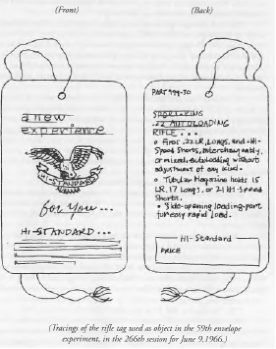 (Front)
(Back)
a new
experience
HI-STANDARD
for You...
HI-STANDARD...
PART 999-30
SPORT-KING
.22 AUTOLOADING
RIFLE...
• Fires .22 LR, Longs, and Hi-
Speed Shorts, interchangeably,
or mixed, autoloading without
adjustment of any kind.
• Tubular Magazine holds 15
LR, 17 Longs, or 21 Hi-Speed
Shorts.
• Side-opening loading-port
for easy rapid load.
Hi-Standard
PRICE
(Tracings of the rifle tag used as object in the 59th envelope
experiment, in the 266th session for June 9, 1966.)